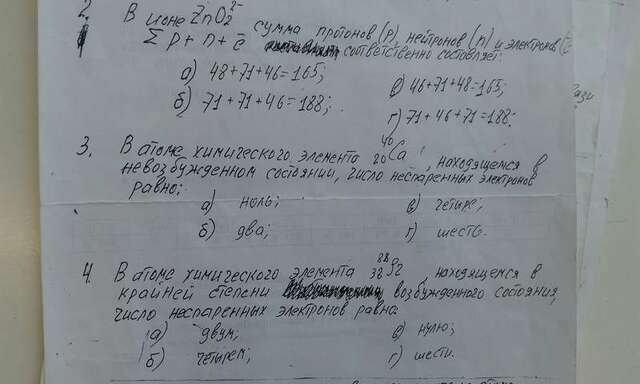 2. В ионе ZnO₂²⁻ сумма протонов (p), нейтронов (n) и электронов
Σ p + n + ē соответственно составляет:
а) 48+71+46=165; в) 46+71+48=165;
б) 71+71+46=188; г) 71+46+71=188.
3. В атоме химического элемента ⁴⁰₂₀Ca, находящемся в
невозбужденном состоянии, число неспаренных электронов
равно:
а) ноль; в) четыре;
б) два; г) шесть.
4. В атоме химического элемента ⁸⁸₃₈Sr, находящемся в
крайней степени возбужденного состояния,
число неспаренных электронов равно:
а) двум; в) нулю;
б) четырем; г) шести.